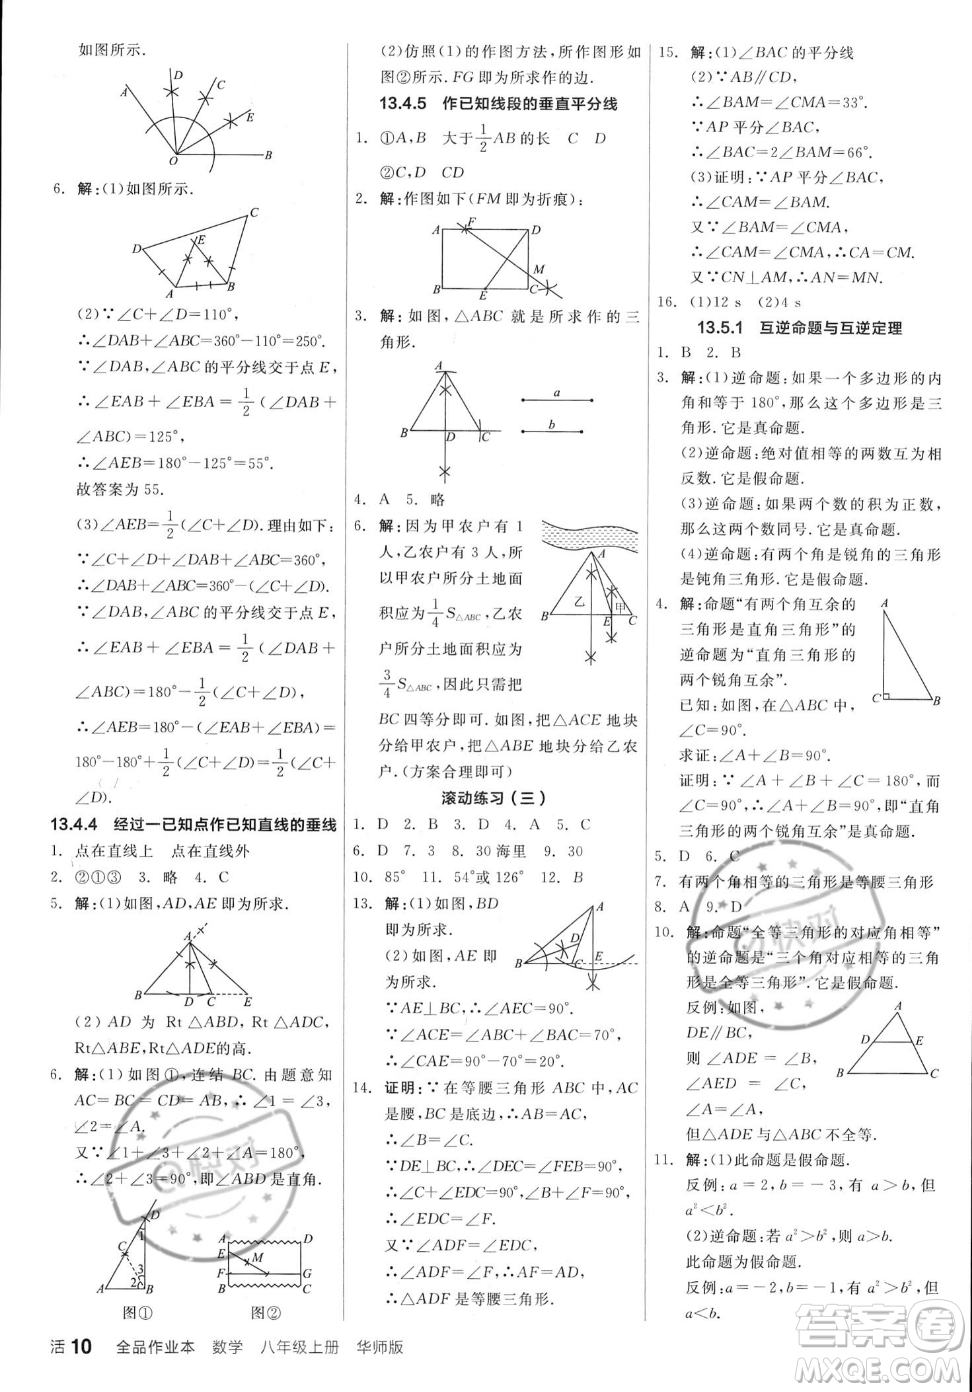 如图所示.
6. 解:(1)如图所示.
(2)∵∠C+∠D=110°,
∴∠DAB+∠ABC=360°-110°=250°.
∵∠DAB,∠ABC的平分线交于点E,
∴∠EAB+∠EBA=1/2(∠DAB+
∠ABC)=125°,
∴∠AEB=180°-125°=55°.
故答案为55.
(3)∠AEB=1/2(∠C+∠D).理由如下:
∵∠C+∠D+∠DAB+∠ABC=360°,
∴∠DAB+∠ABC=360°-(∠C+∠D).
∵∠DAB,∠ABC的平分线交于点E,
∴∠EAB+∠EBA=1/2(∠DAB+
∠ABC)=180°-1/2(∠C+∠D),
∴∠AEB=180°-(∠EAB+∠EBA)=
180°-180°+1/2(∠C+∠D)=1/2(∠C+
∠D).
13.4.4 经过一已知点作已知直线的垂线
1. 点在直线上 点在直线外
2. ②①③ 3. 略 4. C
5. 解:(1)如图,AD,AE即为所求.
(2) AD 为 Rt△ABD,Rt△ADC,
Rt△ABE,Rt△ADE的高.
6. 解:(1)如图①,连结CB.由题意知
DC=CA,CB=AC,∴∠D=∠1,
∠2=∠A.
又∵∠D+∠1+∠2+∠A=180°,
∴∠2+∠3=90°,即∠ABD是直角.
图① 图②
(2)仿照(1)的作图方法,所作图形如
图②所示.FG即为所求作的边.
13.4.5 作已知线段的垂直平分线
1. ①A,B 大于1/2AB的长 C D
②C,D CD
2. 解:作图如下(FM即为折痕):
3. 解:如图,△ABC就是所求作的三
角形.
4. A 5. 略
6. 解:因为甲农户有1
人,乙农户有3人,所
以甲农户所分土地面
积应为1/4S△ABC,乙农
户所分土地面积应为
3/4S△ABC,因此只需把
BC四等分即可.如图,把△AEC地块
分给甲农户,把△ABE地块分给乙农
户.(方案合理即可)
滚动练习(三)
1. D 2. B 3. A 4. C 5. A
6. D 7. 3 8. 30海里 9. 30
10. 85° 11. 54°或126° 12. B
13. 解:(1)如图,BD
即为所求.
(2)如图,AE即为
所求.
∵AE⊥BC,∴∠AEC=90°.
∵∠ACE=∠ABC+∠BAC=70°,
∴∠CAE=90°-70°=20°.
14. 证明:∵在等腰三角形ABC中,AD是
角平分线,BC是底边,∴AD⊥BC,
∴∠B=∠C.
又∵∠B+∠F=90°,
∠C+∠EDC=90°,
∴∠EDC=∠F.
又∵∠ADF=∠EDC,
∴∠ADF=∠F,
∴AD=AF.
15. 解:(1)∠BAC的平分线
(2)∵AB∥CD,
∴∠BAM=∠CMA=33°.
∵AP平分∠BAC,
∴∠BAC=2∠BAM=66°.
(3)证明:∵AP平分∠BAC,
∴∠CAM=∠BAM.
又∵∠BAM=∠CMA,
∴∠CAM=∠CMA,∴CA=CM.
又∵CN⊥AM,∴AN=MN.
16. (1)12 s (2)4 s
13.5.1 互逆命题与互逆定理
1. B 2. B
3. 解:(1)逆命题:如果一个多边形的内
角和等于180°,那么这个多边形是三
角形.它是真命题.
(2)逆命题:绝对值相等的两数互为相
反数.它是假命题.
(3)逆命题:如果两个数的积为正数,
那么这两个数同号.它是真命题.
(4)逆命题:有两个角是锐角的三角形
是钝角三角形.它是假命题.
4. 解:命题“有两个角互余的
三角形是直角三角形”的
逆命题为“直角三角形的
两个锐角互余”.
已知:如图,在△ABC中,
∠C=90°.
求证:∠A+∠B=90°.
证明:∵∠A+∠B+∠C=180°,而
∠C=90°,∴∠A+∠B=90°,即“直角
三角形的两个锐角互余”是真命题.
5. D 6. C
7. 有两个角相等的三角形是等腰三角形
8. A 9. D
10. 解:命题“全等三角形的对应角相等”
的逆命题是“三个角对应相等的三角
形是全等三角形”,是假命题.
反例:如图,
DE∥BC,
则∠ADE=∠B,
∠AED=∠C,
∠A=∠A,
但△ADE与△ABC不全等.
11. 解:(1)此命题是假命题.
反例:a=2,b=-3,有a>b,但
a²<b².
(2)逆命题:若a²>b²,则a>b.
此命题为假命题.
反例:a=-2,b=-1,有a²>b²,但
a<b.
活10 全品作业本 数学 八年级上册 华师版